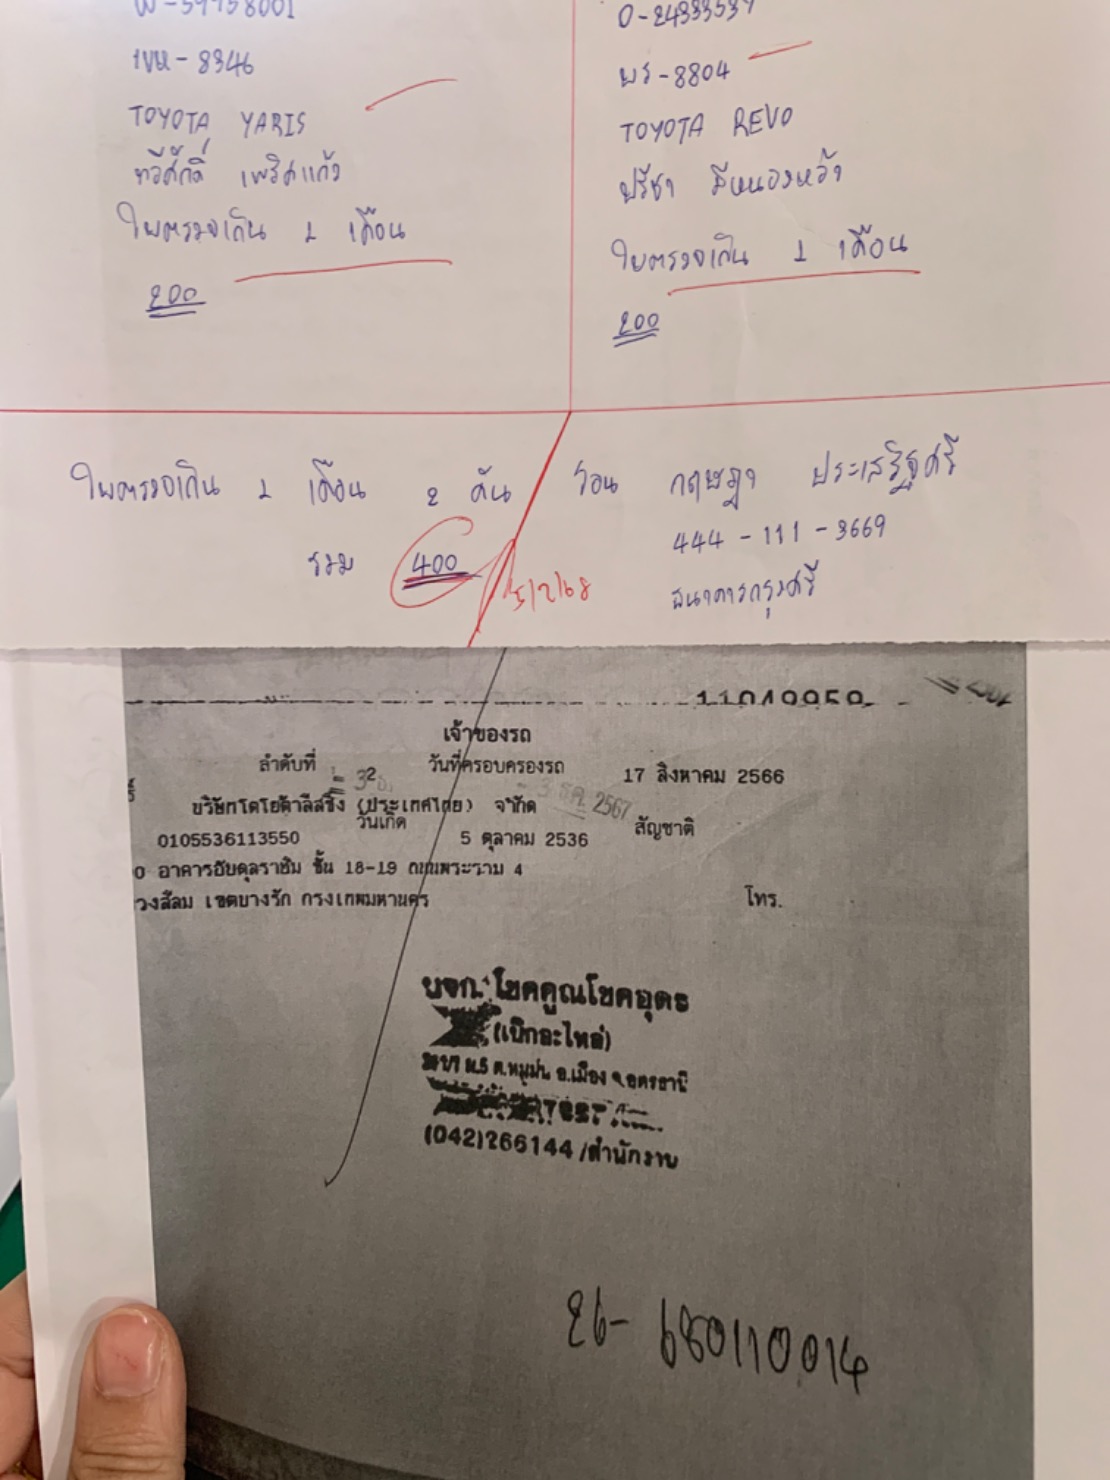 1ขห - 8346
TOYOTA YARIS
ทวีศักดิ์ เพริศแก้ว
ใบตรวจเกิน 1 เดือน
200
0-24333539
ผร - 8804
TOYOTA REVO
ปรีชา สีหนองหว้า
ใบตรวจเกิน 1 เดือน
200
ใบตรวจเกิน 1 เดือน 2 คัน โอน กฤษฎา ประเสริฐศรี
รวม 400 444 - 111 - 3669
5/2/68 ธนาคารกรุงศรี
11049959
เจ้าของรถ
ลำดับที่ 32 วันที่ครอบครองรถ 17 สิงหาคม 2566
3 ธค. 2567
บริษัทโตโยต้าลีสซิ่ง (ประเทศไทย) จำกัด
0105536113550 วันเกิด 5 ตุลาคม 2536 สัญชาติ
อาคารอับดุลราฮิม ชั้น 18-19 ถนนพระราม 4
เขตบางรัก กรุงเทพมหานคร โทร.
บจก. โชคคูณโชคอุดร
(เบิกอะไหล่)
ม.5 ต.หมูม่น อ.เมือง จ.อุดรธานี
(042)266144 /สำนักงาน
26- 680110014